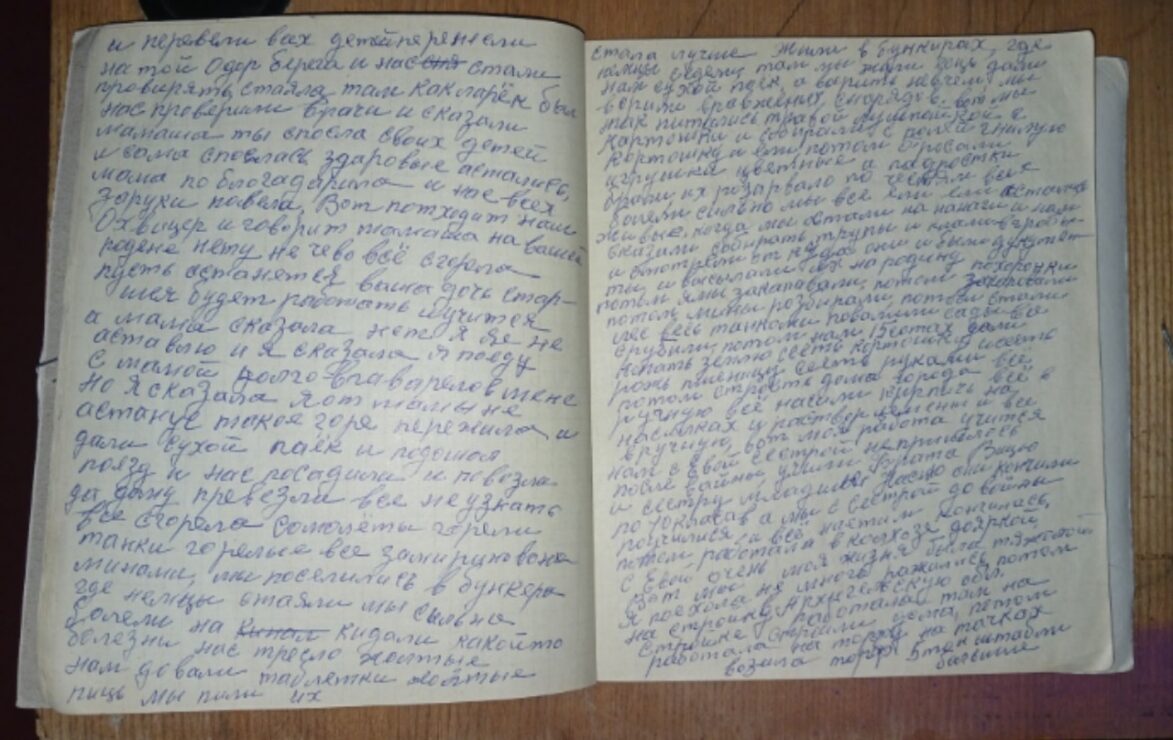 и перевели вах детей перенесли
на той Одер берега и нас стали
провирять стаяла там как ларёк был
нас проверили врачи и сказали
мамаша ты спосла своих детей
и сама спослась здаровые астались,
мама поблагадарила и нас всех
заруки повела, Вот потходит наш
Охвицер и говорит мамаша на вашей
родене нету не чево всё сгорела
пусть останется ваша дочь стар-
шея будет работать и учится
а мама сказала нет я её не
аставлю и я сказала я поеду
с мамой долго вгаварелов мене
но я сказала я от мамы не
астанус такое горе пережила и
дали сухой паёк и подошол
поязд и нас посадили и повезла
да дому превезли все не узнать
всё сгорела самолёты горели
танки горелые все заминировона
минами, мы поселились в бункера
где немцы стаяли мы сильна
болели на кидали какойто
болезни нас тресло жолтые
нам довали таблетки жолтые
пищь мы пили их
стала лучше Жили в бункирах, где
немцы седели, там мы жили дали
нам сухой поёк, а варить нечем, мы
верили снарядов, вот мы
так питались травой с
картошки и собирали с полей гнилую
кортошку и ели потом бросали
игрушки цветные а подростки
брали их розарвало по честям все
болели сильно мы все ели ели астались
живые, когда мы встали на наноги и нам
сказали собирать трупы и клали в гробы
и смотрели от куда они и
ты, и высылали их на родину похоронки
потом ямы закаповали, потом
потом мины розбирали, потом стали
лес весь танками повалили сады все
срубили, потом нам 15 сотах дали
копать землю сеять картошку и сеять
рожь пшеницу сеять руками все
потом строять дома города все
ручную всё насили кирпичь на
насилках и раствор цемент и всё в
вручную, вот моя работа и все
нам с Евой сестрой не пришлось учится
после войны учили Брата Витю
и сестру младшых Настю они кончили
по 10 класав а мы с сестрой до войны
поучилися и всё на етим кончилась,
потом работала в колхозе дояркой
с Евой очень моя жизня была тяжолой
Вот мы не много ражились потом
Я поехола на Архигельскую обл.
на стройку, работала там на
стройке строили дома, потом
работала на торфу на тачках
возила торф в штабли
бальшие